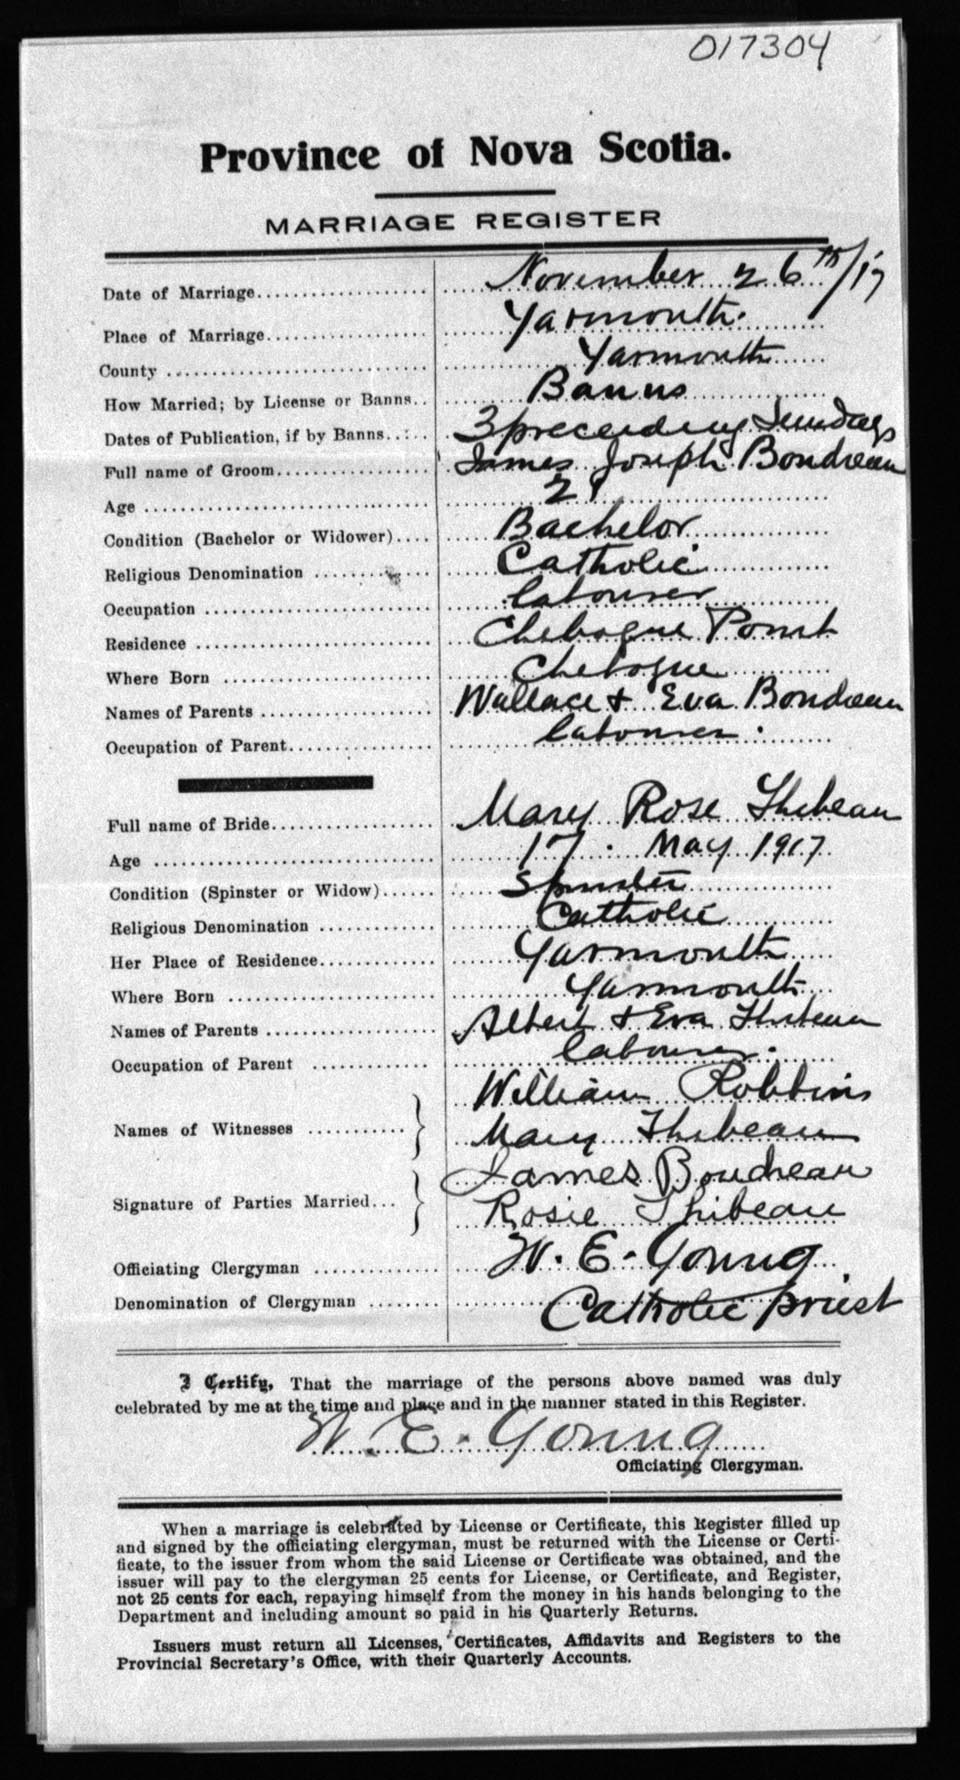 017304
Province of Nova Scotia.
MARRIAGE REGISTER
Date of Marriage.................... November 26th/17
Place of Marriage................... Yarmouth.
County ............................. Yarmouth
How Married; by License or Banns.. Banns
Dates of Publication, if by Banns..... 3 preceeding Sundays
Full name of Groom.................. James Joseph Boudreau
Age ................................ 21
Condition (Bachelor or Widower).... Bachelor
Religious Denomination ............. Catholic
Occupation ......................... labourer
Residence .......................... Chebogue Point
Where Born ......................... Chebogue
Names of Parents ................... Wallace & Eva Boudreau
Occupation of Parent................ labourer.
Full name of Bride.................. Mary Rose Thibeau
Age ................................ 17. May 1917
Condition (Spinster or Widow)...... Spinster
Religious Denomination ............. Catholic
Her Place of Residence............. Yarmouth
Where Born ......................... Yarmouth
Names of Parents ................... Albert & Eva Thibeau
Occupation of Parent ............... labourer.
Names of Witnesses ........... } William Robbins
Mary Thibeau
Signature of Parties Married... } James Boudreau
Rosie Thibeau
Officiating Clergyman .............. W. E. Young
Denomination of Clergyman ........ Catholic priest
I Certify, That the marriage of the persons above named was duly
celebrated by me at the time and place and in the manner stated in this Register.
W. E. Young
Officiating Clergyman.
When a marriage is celebrated by License or Certificate, this Register filled up
and signed by the officiating clergyman, must be returned with the License or Certi-
ficate, to the issuer from whom the said License or Certificate was obtained, and the
issuer will pay to the clergyman 25 cents for License, or Certificate, and Register,
not 25 cents for each, repaying himself from the money in his hands belonging to the
Department and including amount so paid in his Quarterly Returns.
Issuers must return all Licenses, Certificates, Affidavits and Registers to the
Provincial Secretary's Office, with their Quarterly Accounts.